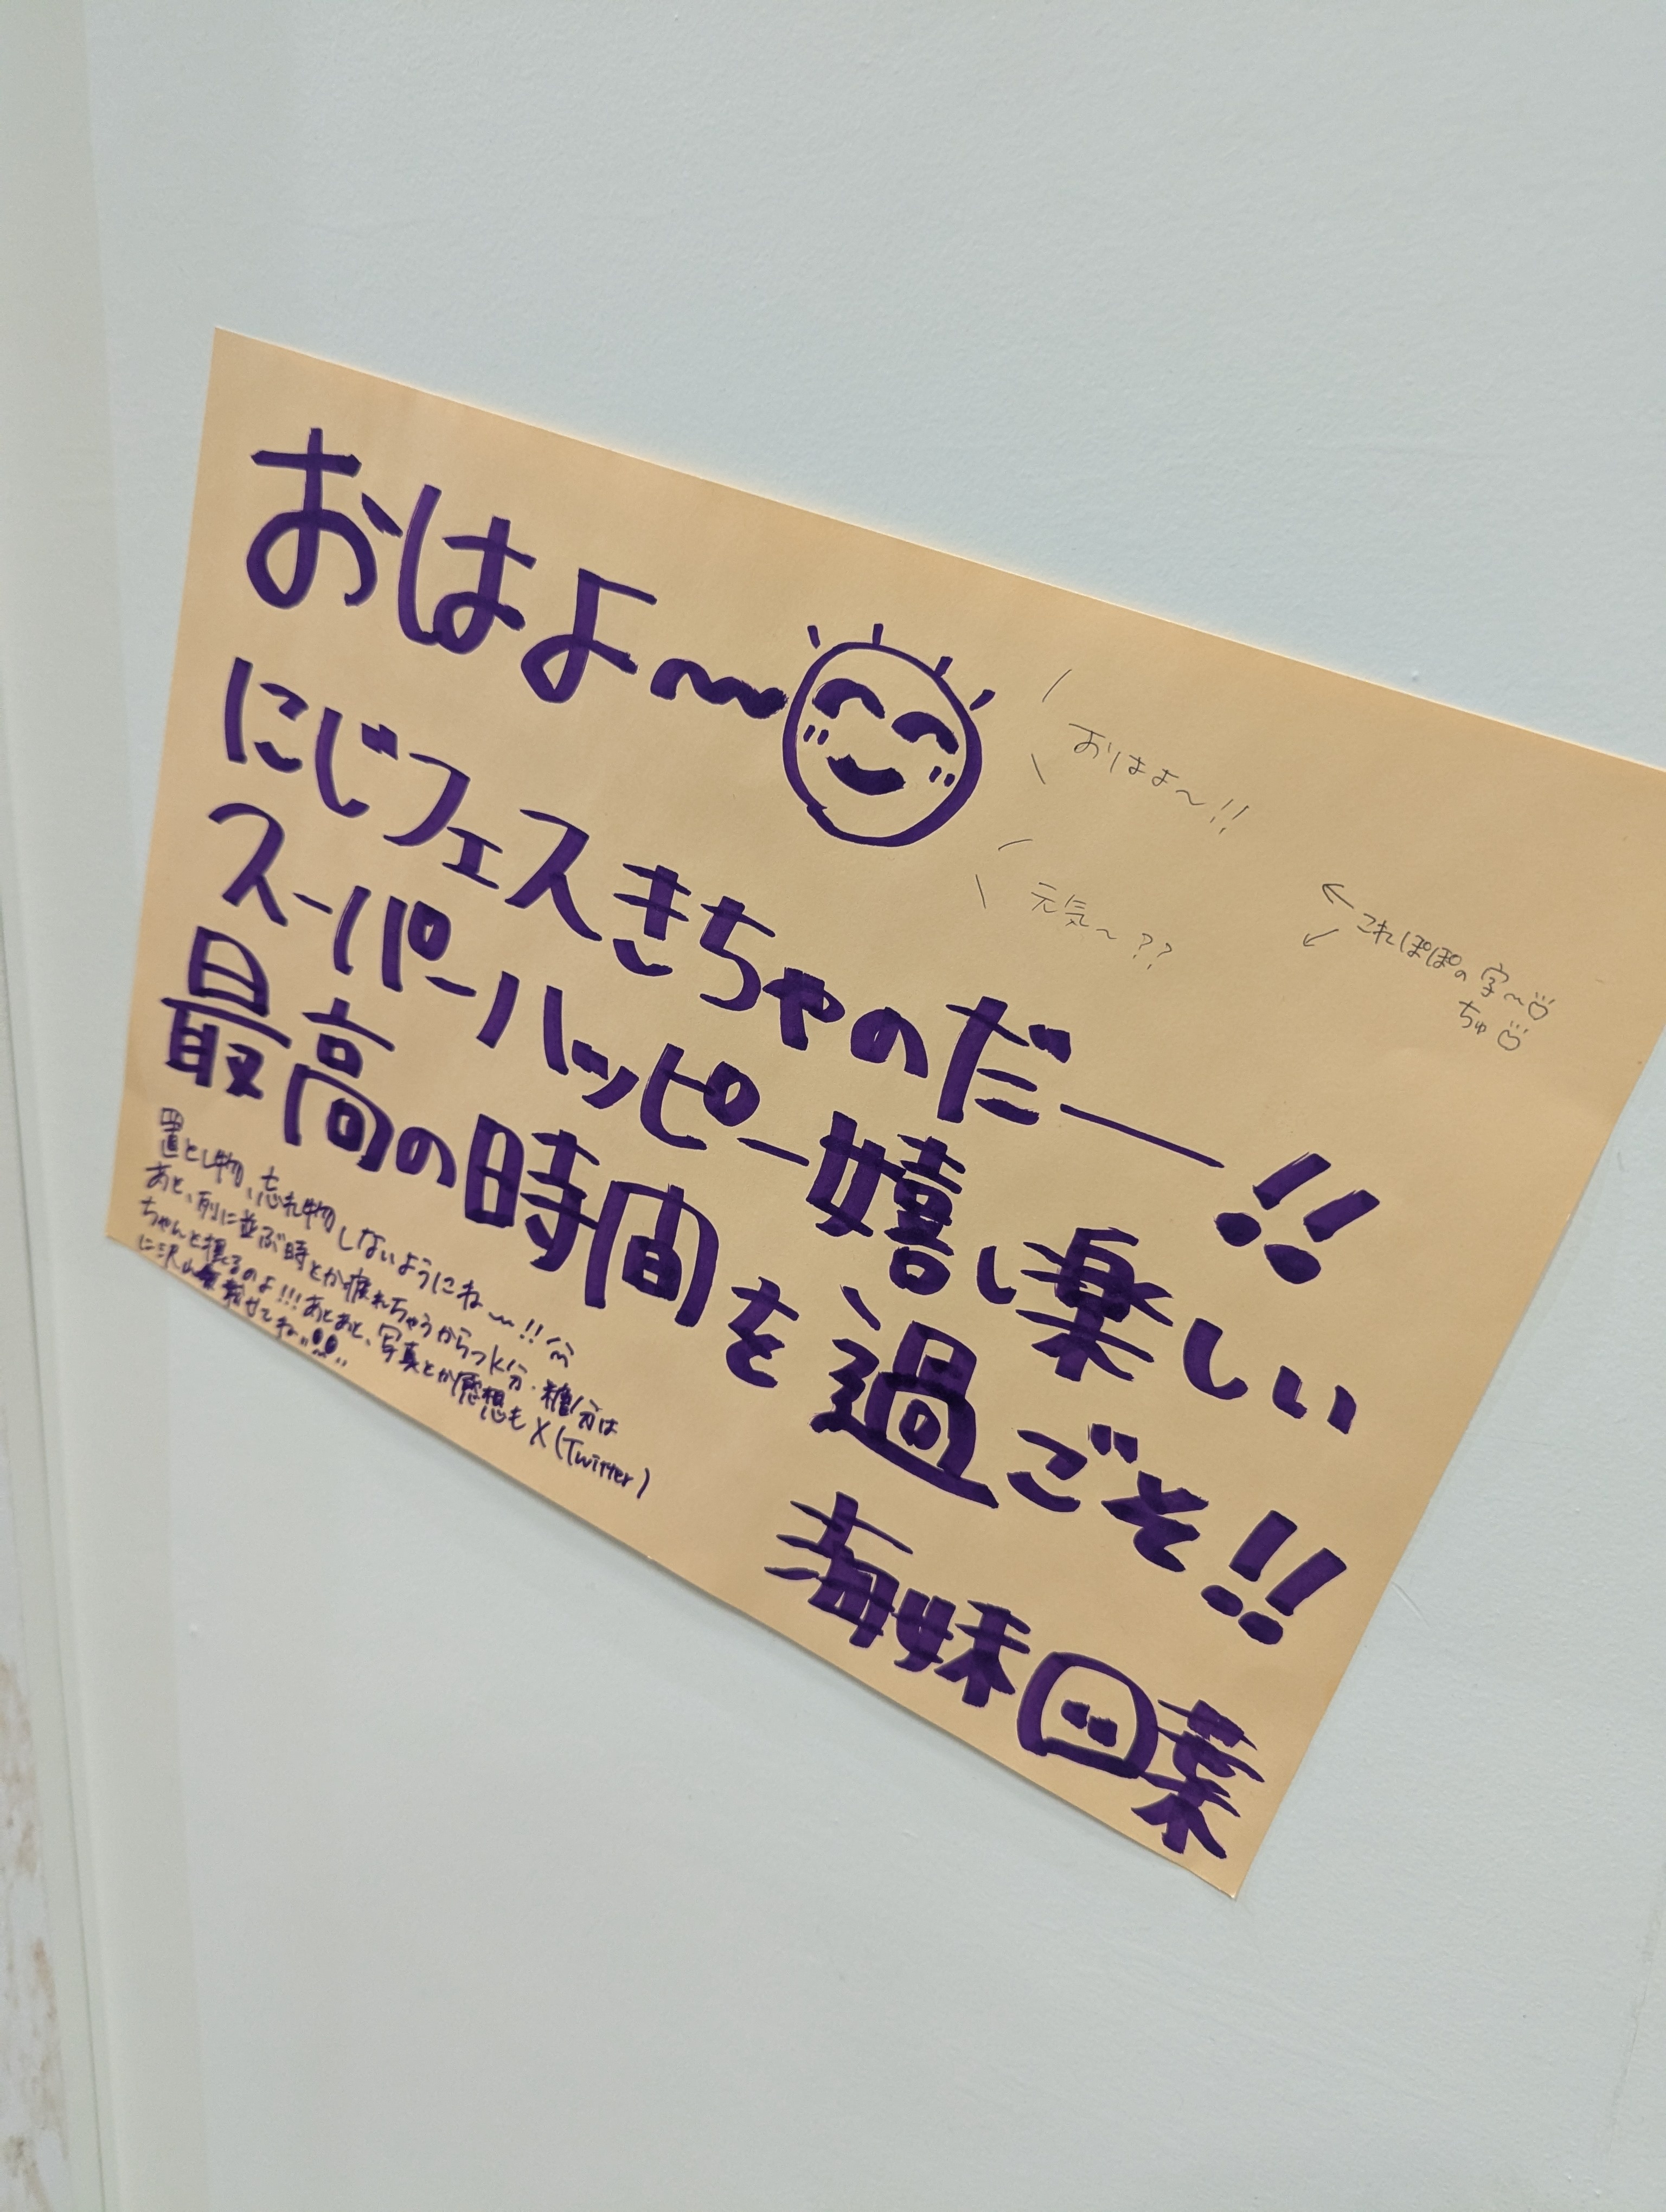 おはよ〜
おはよ〜!!
元気〜??
これぽぽの字〜
ちゅ
にじフェスきちゃのだー!!
スーパーハッピー嬉し楽しい
最高の時間を過ごそ!!
置とし物、忘れ物しないようにね〜!!
あと、列に並ぶ時とか疲れちゃうから水分・糖分は
ちゃんと摂るのよ!!!あとあと、写真とか感想もX(Twitter)
に沢山載せてね
海妹四葉